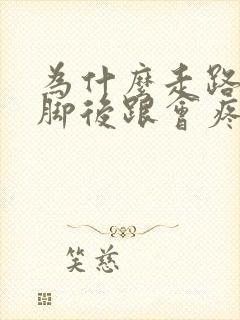 為什麼走路
腳後跟會疼
笑慈